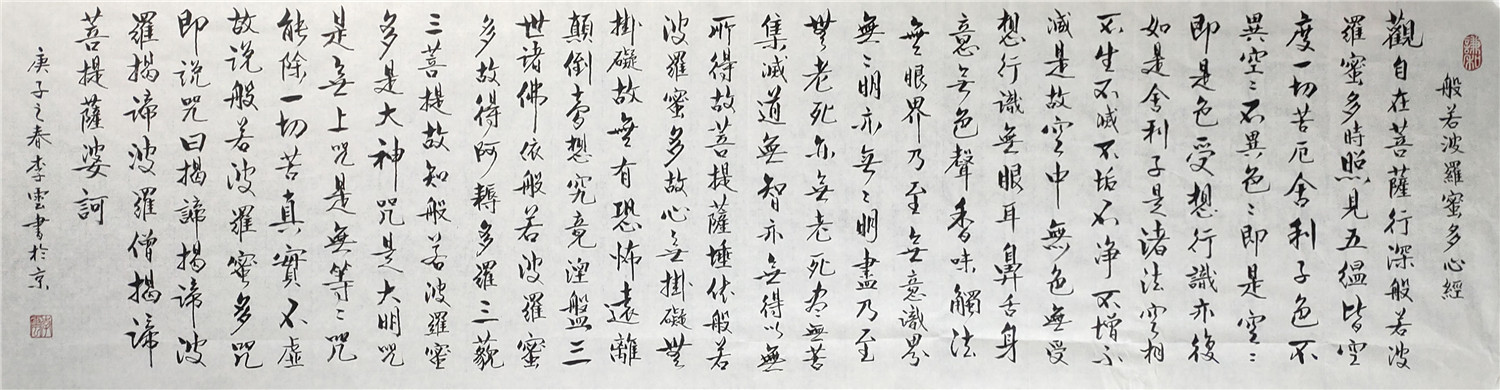 般若波羅蜜多心經
觀自在菩薩行深般若波
羅蜜多時照見五緼皆空
度一切苦厄舍利子色不
異空〻不異色〻即是空〻
即是色受想行識亦復
如是舍利子是諸法空相
不生不滅不垢不净不增不
減是故空中無色無受
想行識無眼耳鼻舌身
意无色聲香味觸法
无眼界乃至无意識界
無〻明亦无〻明盡乃至
無老死亦无老死尽无苦
集滅道無智亦无得以無
所得故菩提薩埵依般若
波羅蜜多故心无掛礙無
掛礙故無有恐怖遠離
顛倒夢想究竟涅盤三
世諸佛依般若波羅蜜
多故得阿耨多羅三藐
三菩提故知般若波羅蜜
多是大神咒是大明咒
是无上咒是無等〻咒
能除一切苦真實不虛
故説般若波羅蜜多咒
即説咒曰揭諦揭諦波
羅揭諦波羅僧揭諦
菩提薩婆訶
庚子之春李雲書於京